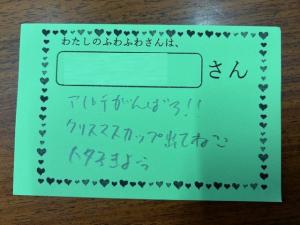 わたしのふわふわさんは、
さん
アルテがんばろ!!
クリスマスカップ出てねここ